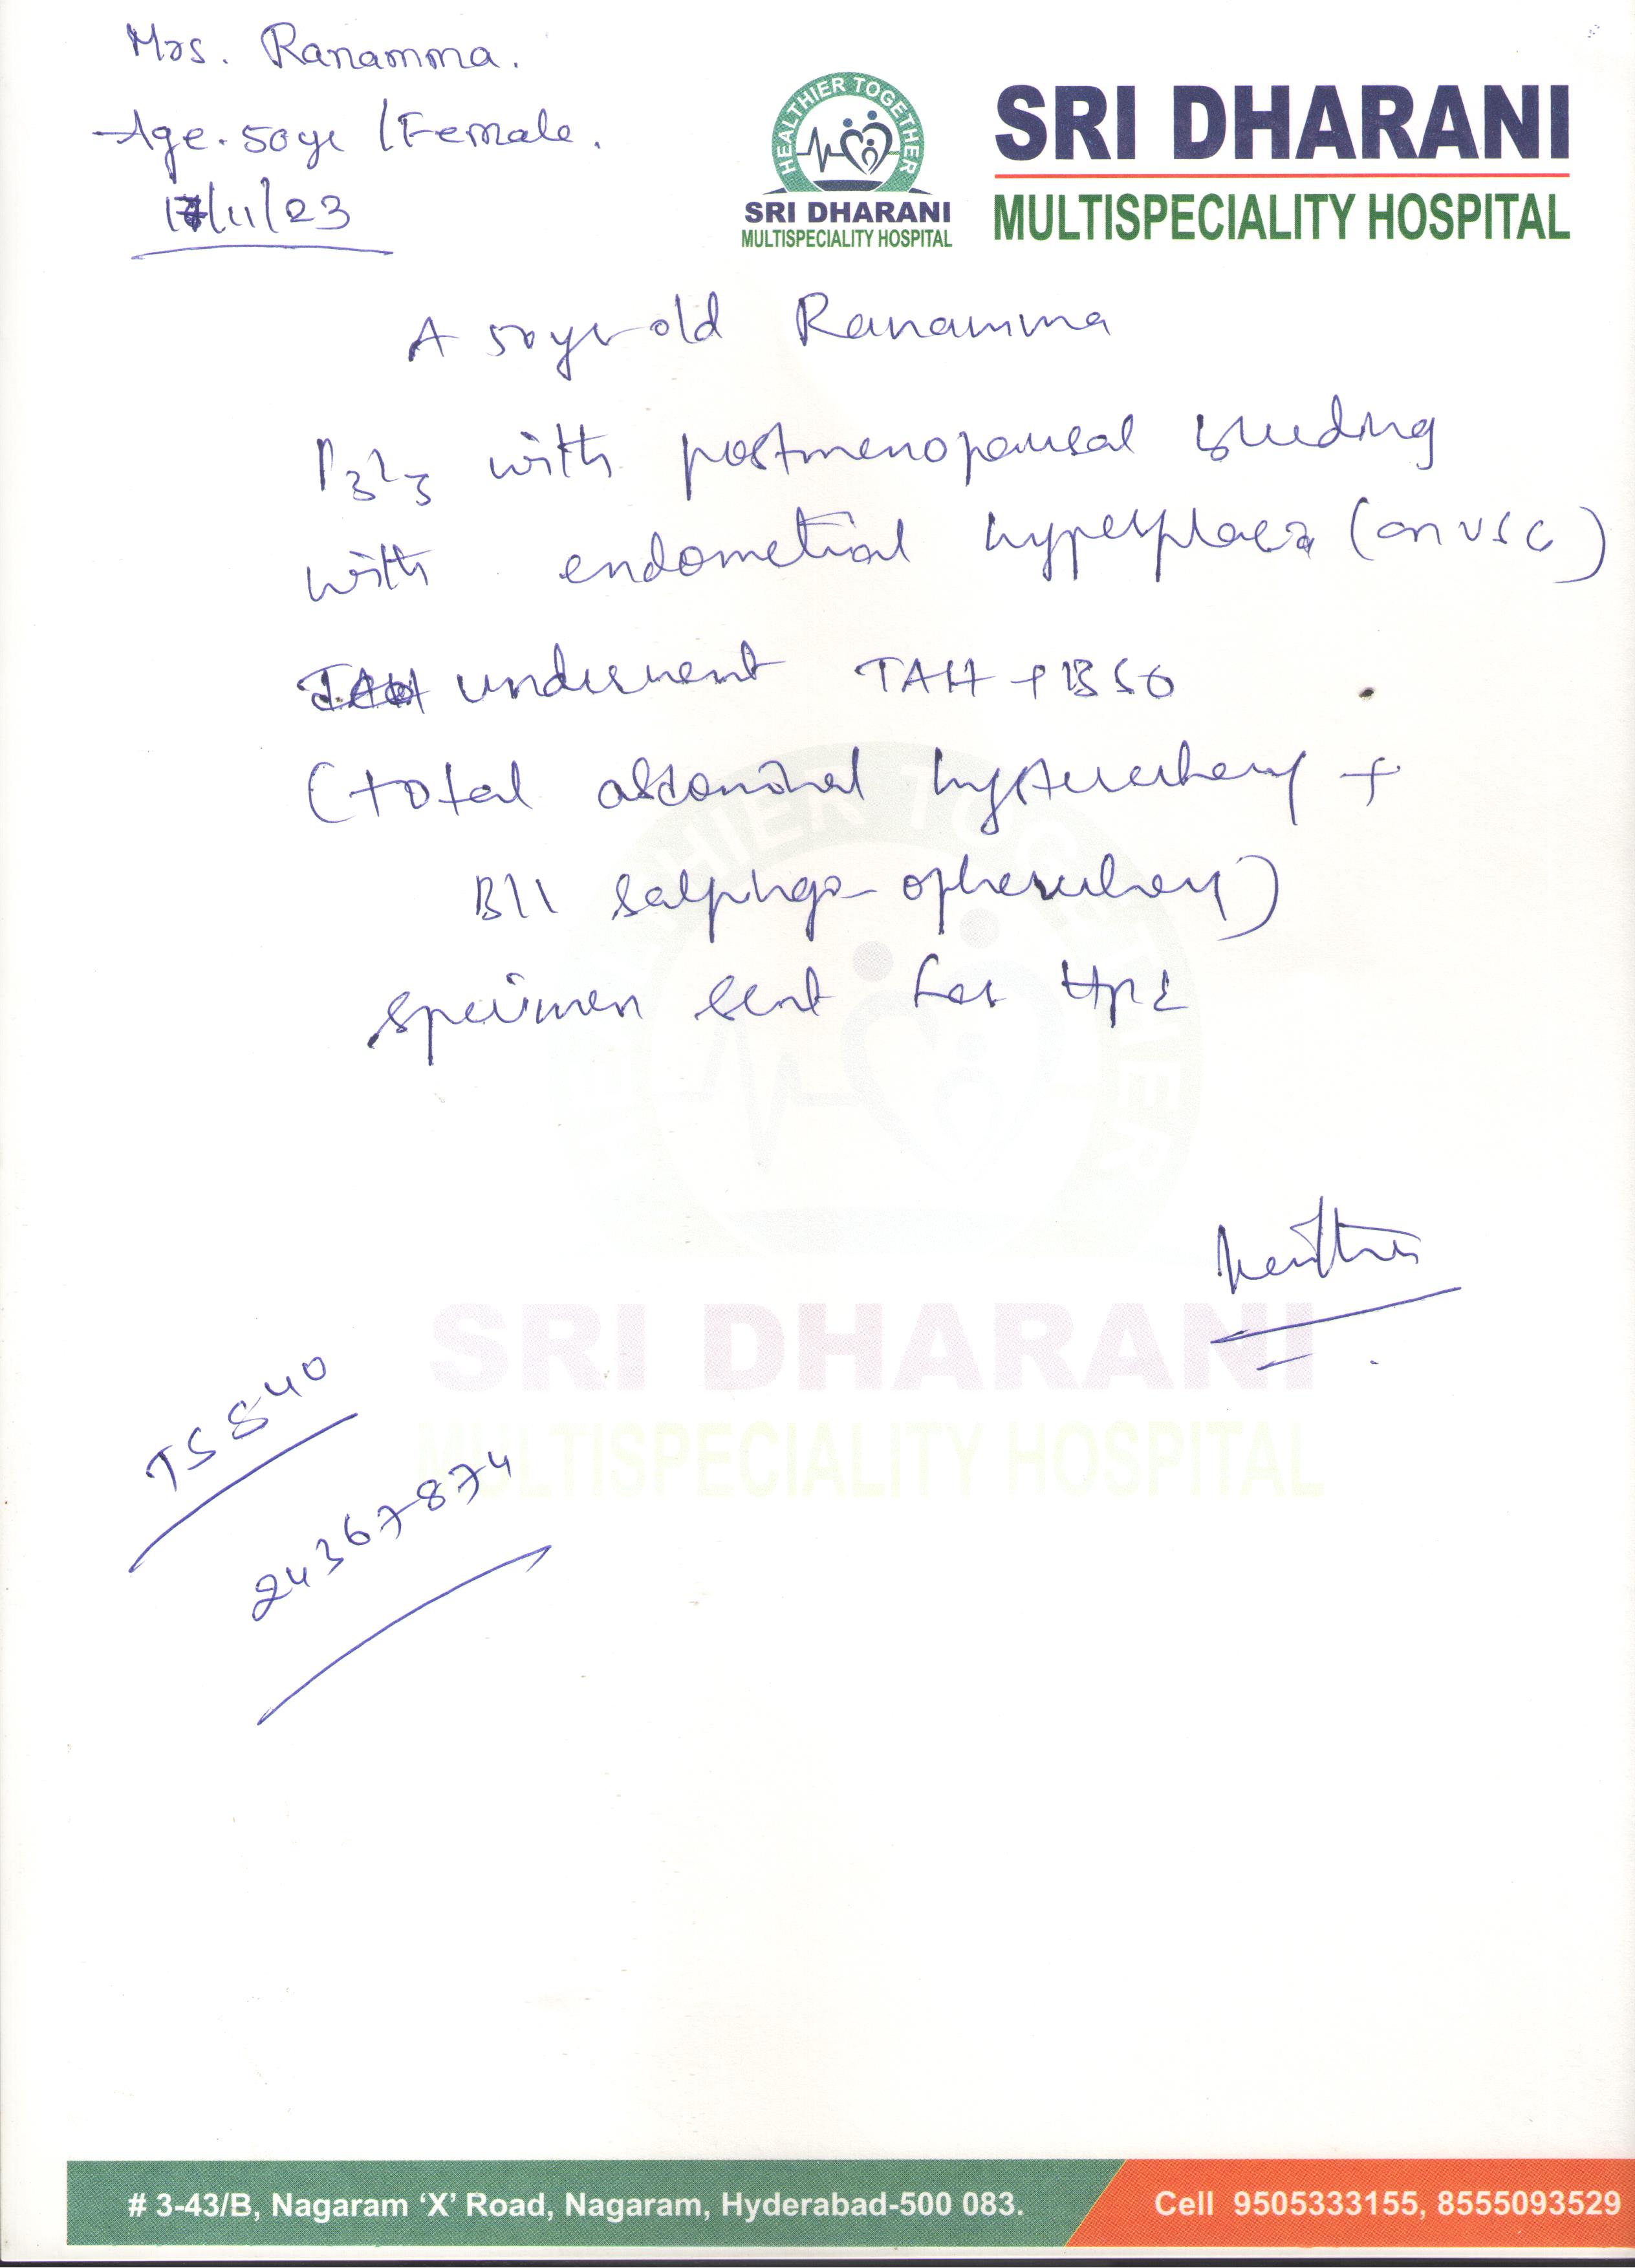 Mrs. Ranamma.
Age. 50yr / Female.
17/11/23
HEALTHIER TOGETHER
SRI DHARANI
MULTISPECIALITY HOSPITAL
SRI DHARANI
MULTISPECIALITY HOSPITAL
A 50yr old Ranamma
P3L3 with postmenopausal bleeding
with endometrial hyperplasia (on USG)
TAH underwent TAH + BSO
(total abdominal hysterectomy +
B/L salpingo-ophorectomy)
specimen sent for HPE
HEALTHIER TOGETHER
SRI DHARANI
MULTISPECIALITY HOSPITAL
TS840
24367874
# 3-43/B, Nagaram ‘X’ Road, Nagaram, Hyderabad-500 083.
Cell 9505333155, 8555093529